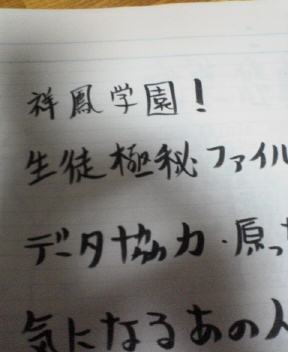 祥鳳学園!
生徒極秘ファイル
データ協力・原っ
気になるあの人